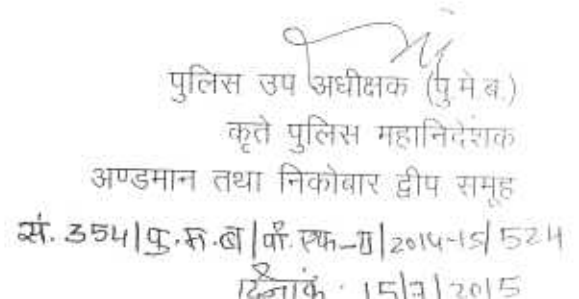 पुलिस उप अधीक्षक (पु.मे.ब.)
कृते पुलिस महानिदेशक
अण्डमान तथा निकोबार द्वीप समूह
सं. 354|पु.म.ब|पी.एफ-II|2014-15|524
दिनांक: 15|7|2015